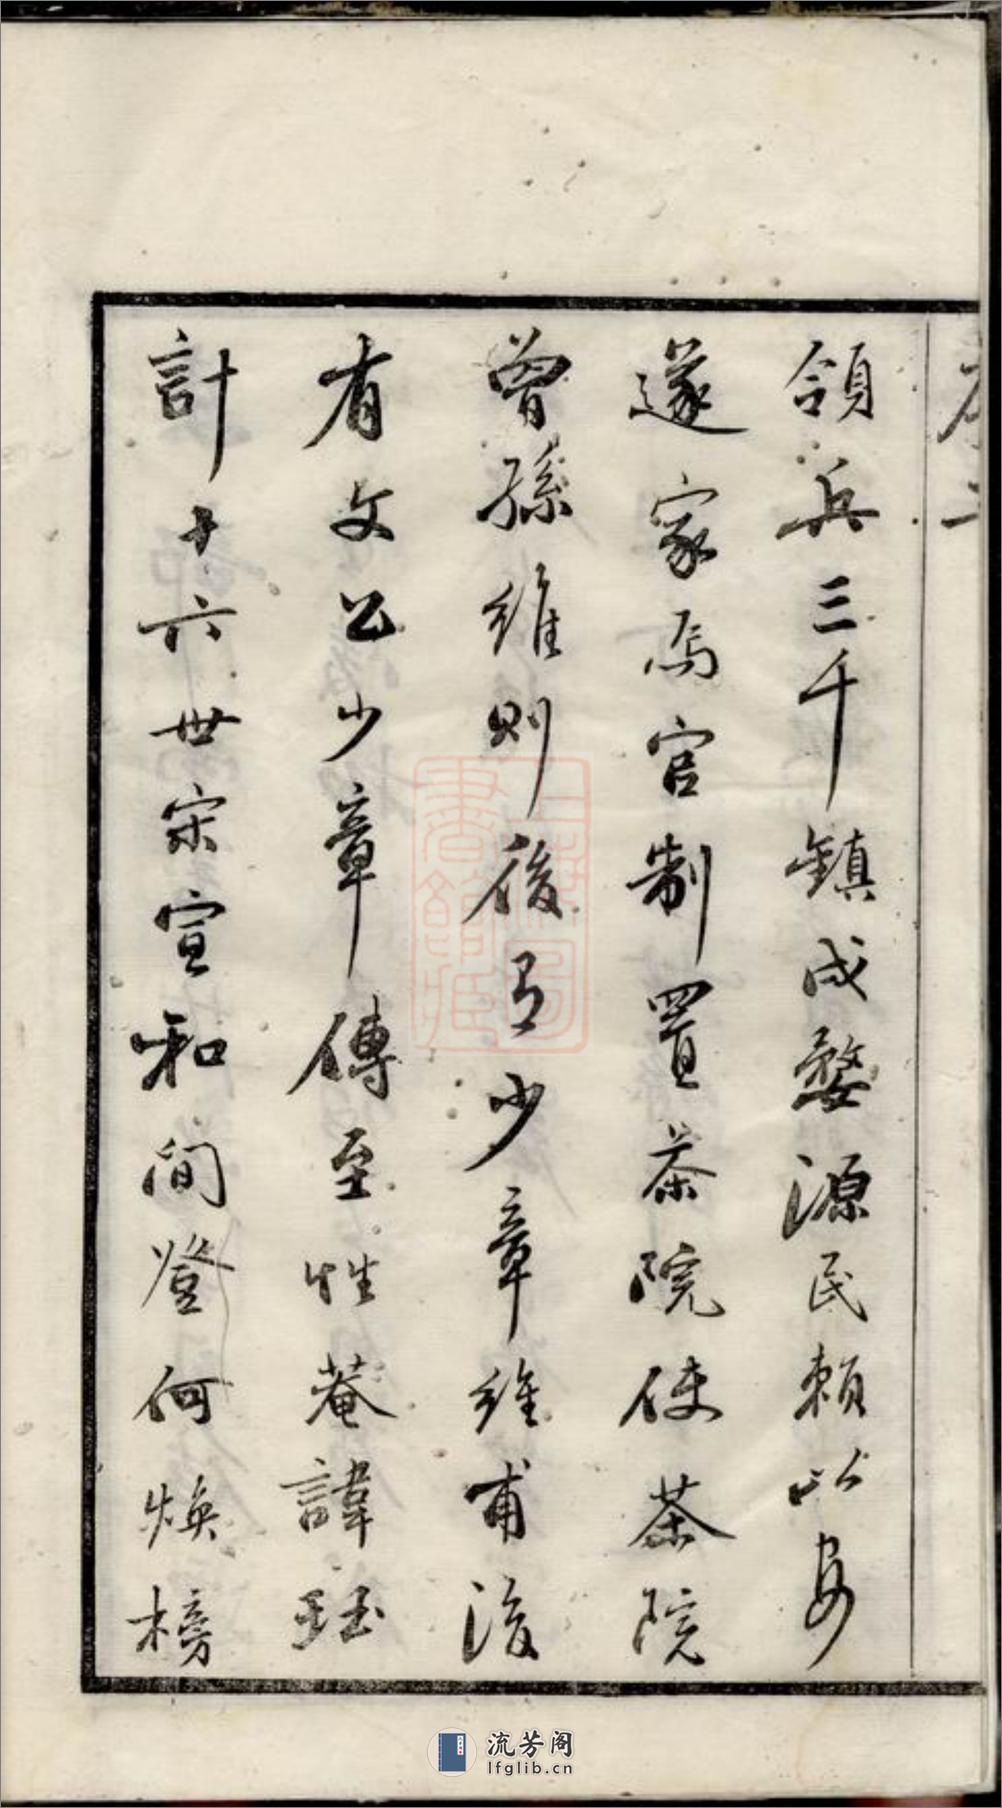 序二
領兵三千鎮戍婺源民賴以安
遂家焉官制置茶院使茶院
曾孫維則後有少章維甫後
有文公少章傳至性菴諱珏
計十六世宋宣和間登何煥榜
上海圖書館藏
流芳阁
lfglib.cn